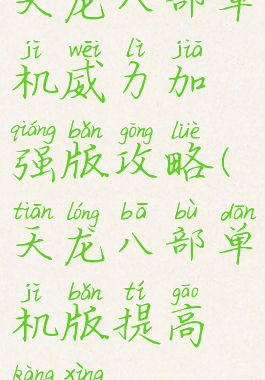 天龙八部单
jī wēi lì jiā
机威力加
qiáng bǎn gōng lüè
强版攻略(
tiān lóng bā bù dān
天龙八部单
jī bǎn tí gāo
机版提高
kàng xìng